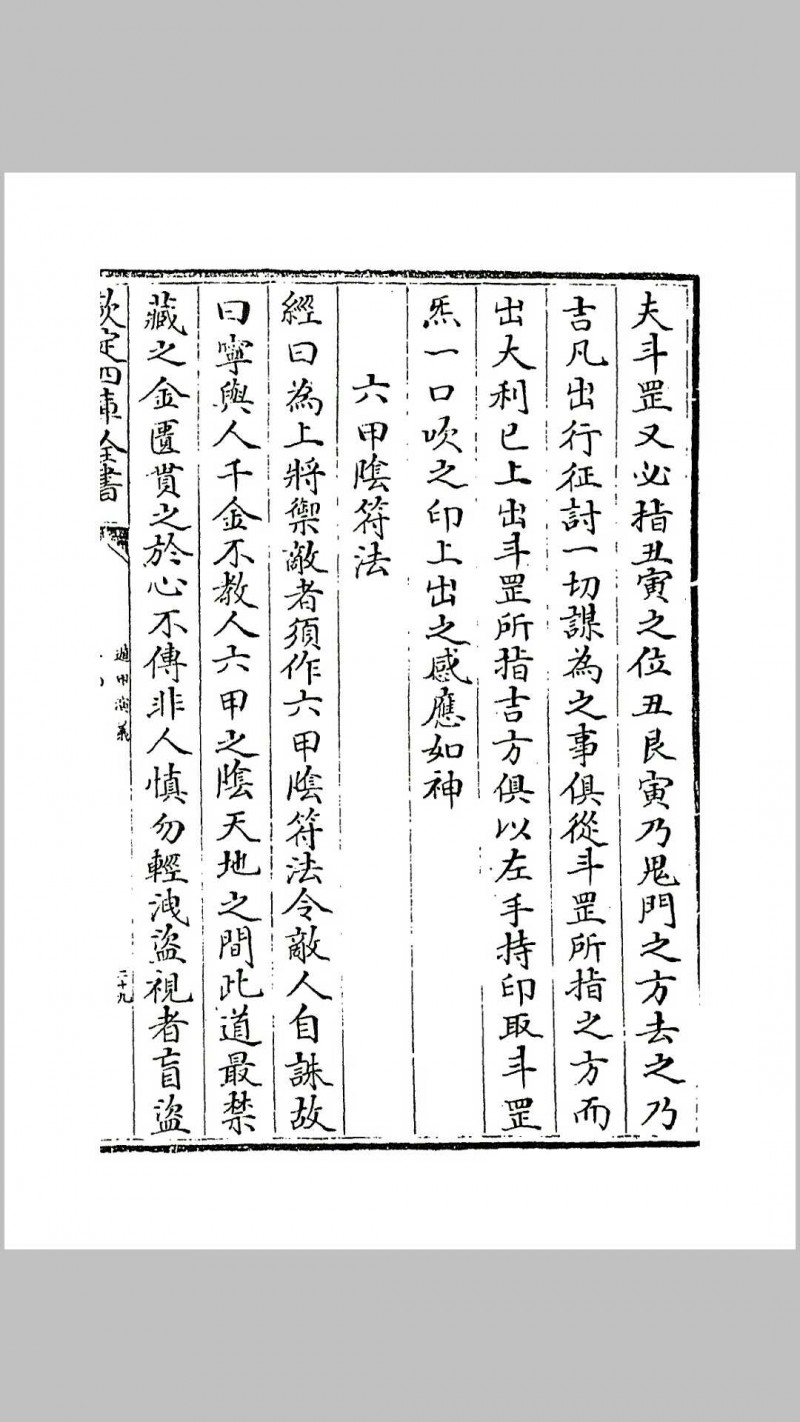 夫斗罡又必指丑寅之位丑艮寅乃鬼門之方去之乃
吉凡出行征討一切謀為之事俱從斗罡所指之方而
出大利已上出斗罡所指吉方俱以左手持印取斗罡
炁一口吹之印上出之感應如神
六甲陰符法
經曰為上將禦敵者須作六甲陰符法令敵人自誅故
曰寧與人千金不教人六甲之陰天地之間此道最禁
藏之金匱貫之於心不傳非人慎勿輕洩盜視者盲盜
欽定四庫全書
遁甲演義
二十九